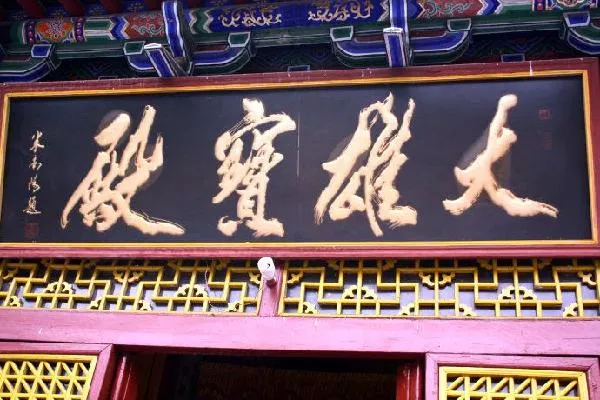 大雄寶殿
米南陽題